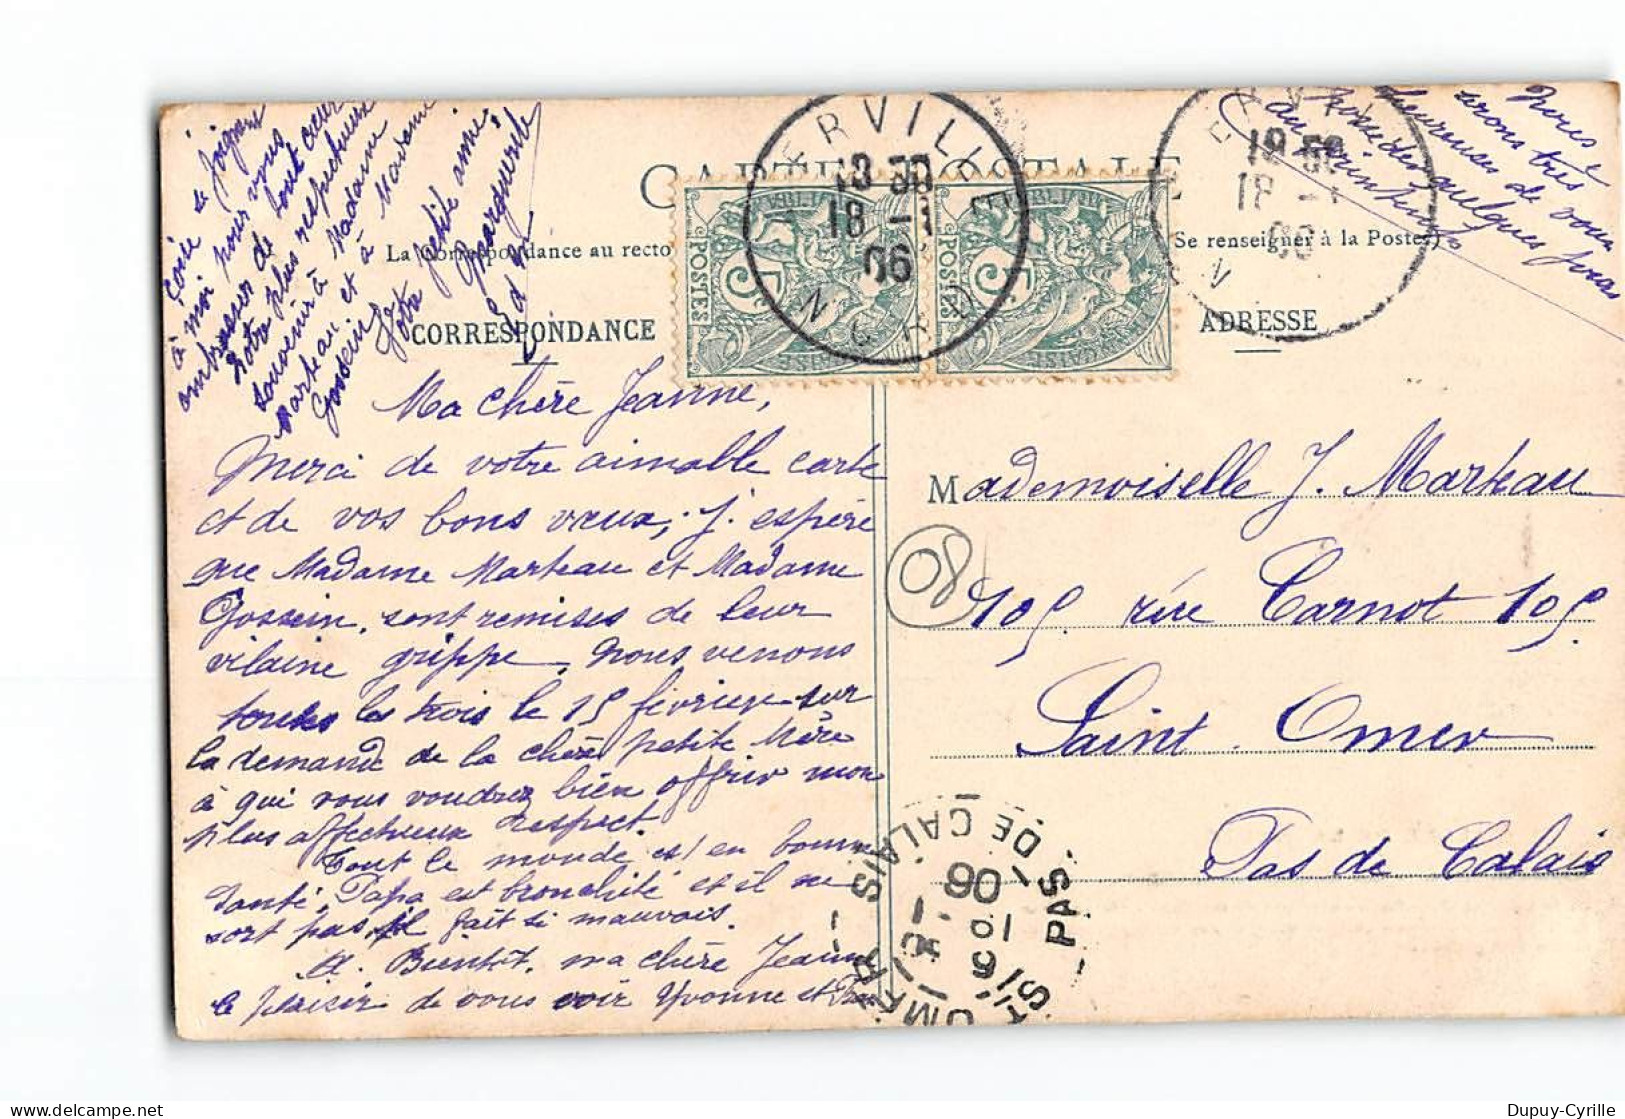 CARTE POSTALE
La Correspondance au recto
Se renseigner à la Poste)
CORRESPONDANCE
ADRESSE
Ma chère Jeanne,
Merci de votre aimable carte
et de vos bons vœux; j. espère
que Madame Marteau et Madame
Gossein, sont remises de leur
vilaine grippe, nous venons
toutes les trois le 15 février sur
la demande de la chère petite Mère
à qui vous voudrez bien offrir mon
plus affectueux respect.
Tout le monde est en bonne
santé, Papa est bronchité et il ne
sort pas, il fait si mauvais.
A. Bientôt, ma chère Jeanne
le plaisir de vous voir Yvonne et
à moi pour vous
embrasser de tout cœur
Notre plus respectueux
souvenir à Madame
Marteau et à Madame
Gossein
Votre petite amie,
Marguerite
Nous
serons très
heureuses de vous
quelques jours
au printemps
Mademoiselle J. Marteau
105. rue Carnot 105.
Saint. Omer
Pas de Calais
08
ERVILLE
18 30
18 -1
06
18 30
18 -1
06
POSTES
5c
POSTES
5c
ST OMER
PAS-DE-CALAIS
06
Dupuy-Cyrille